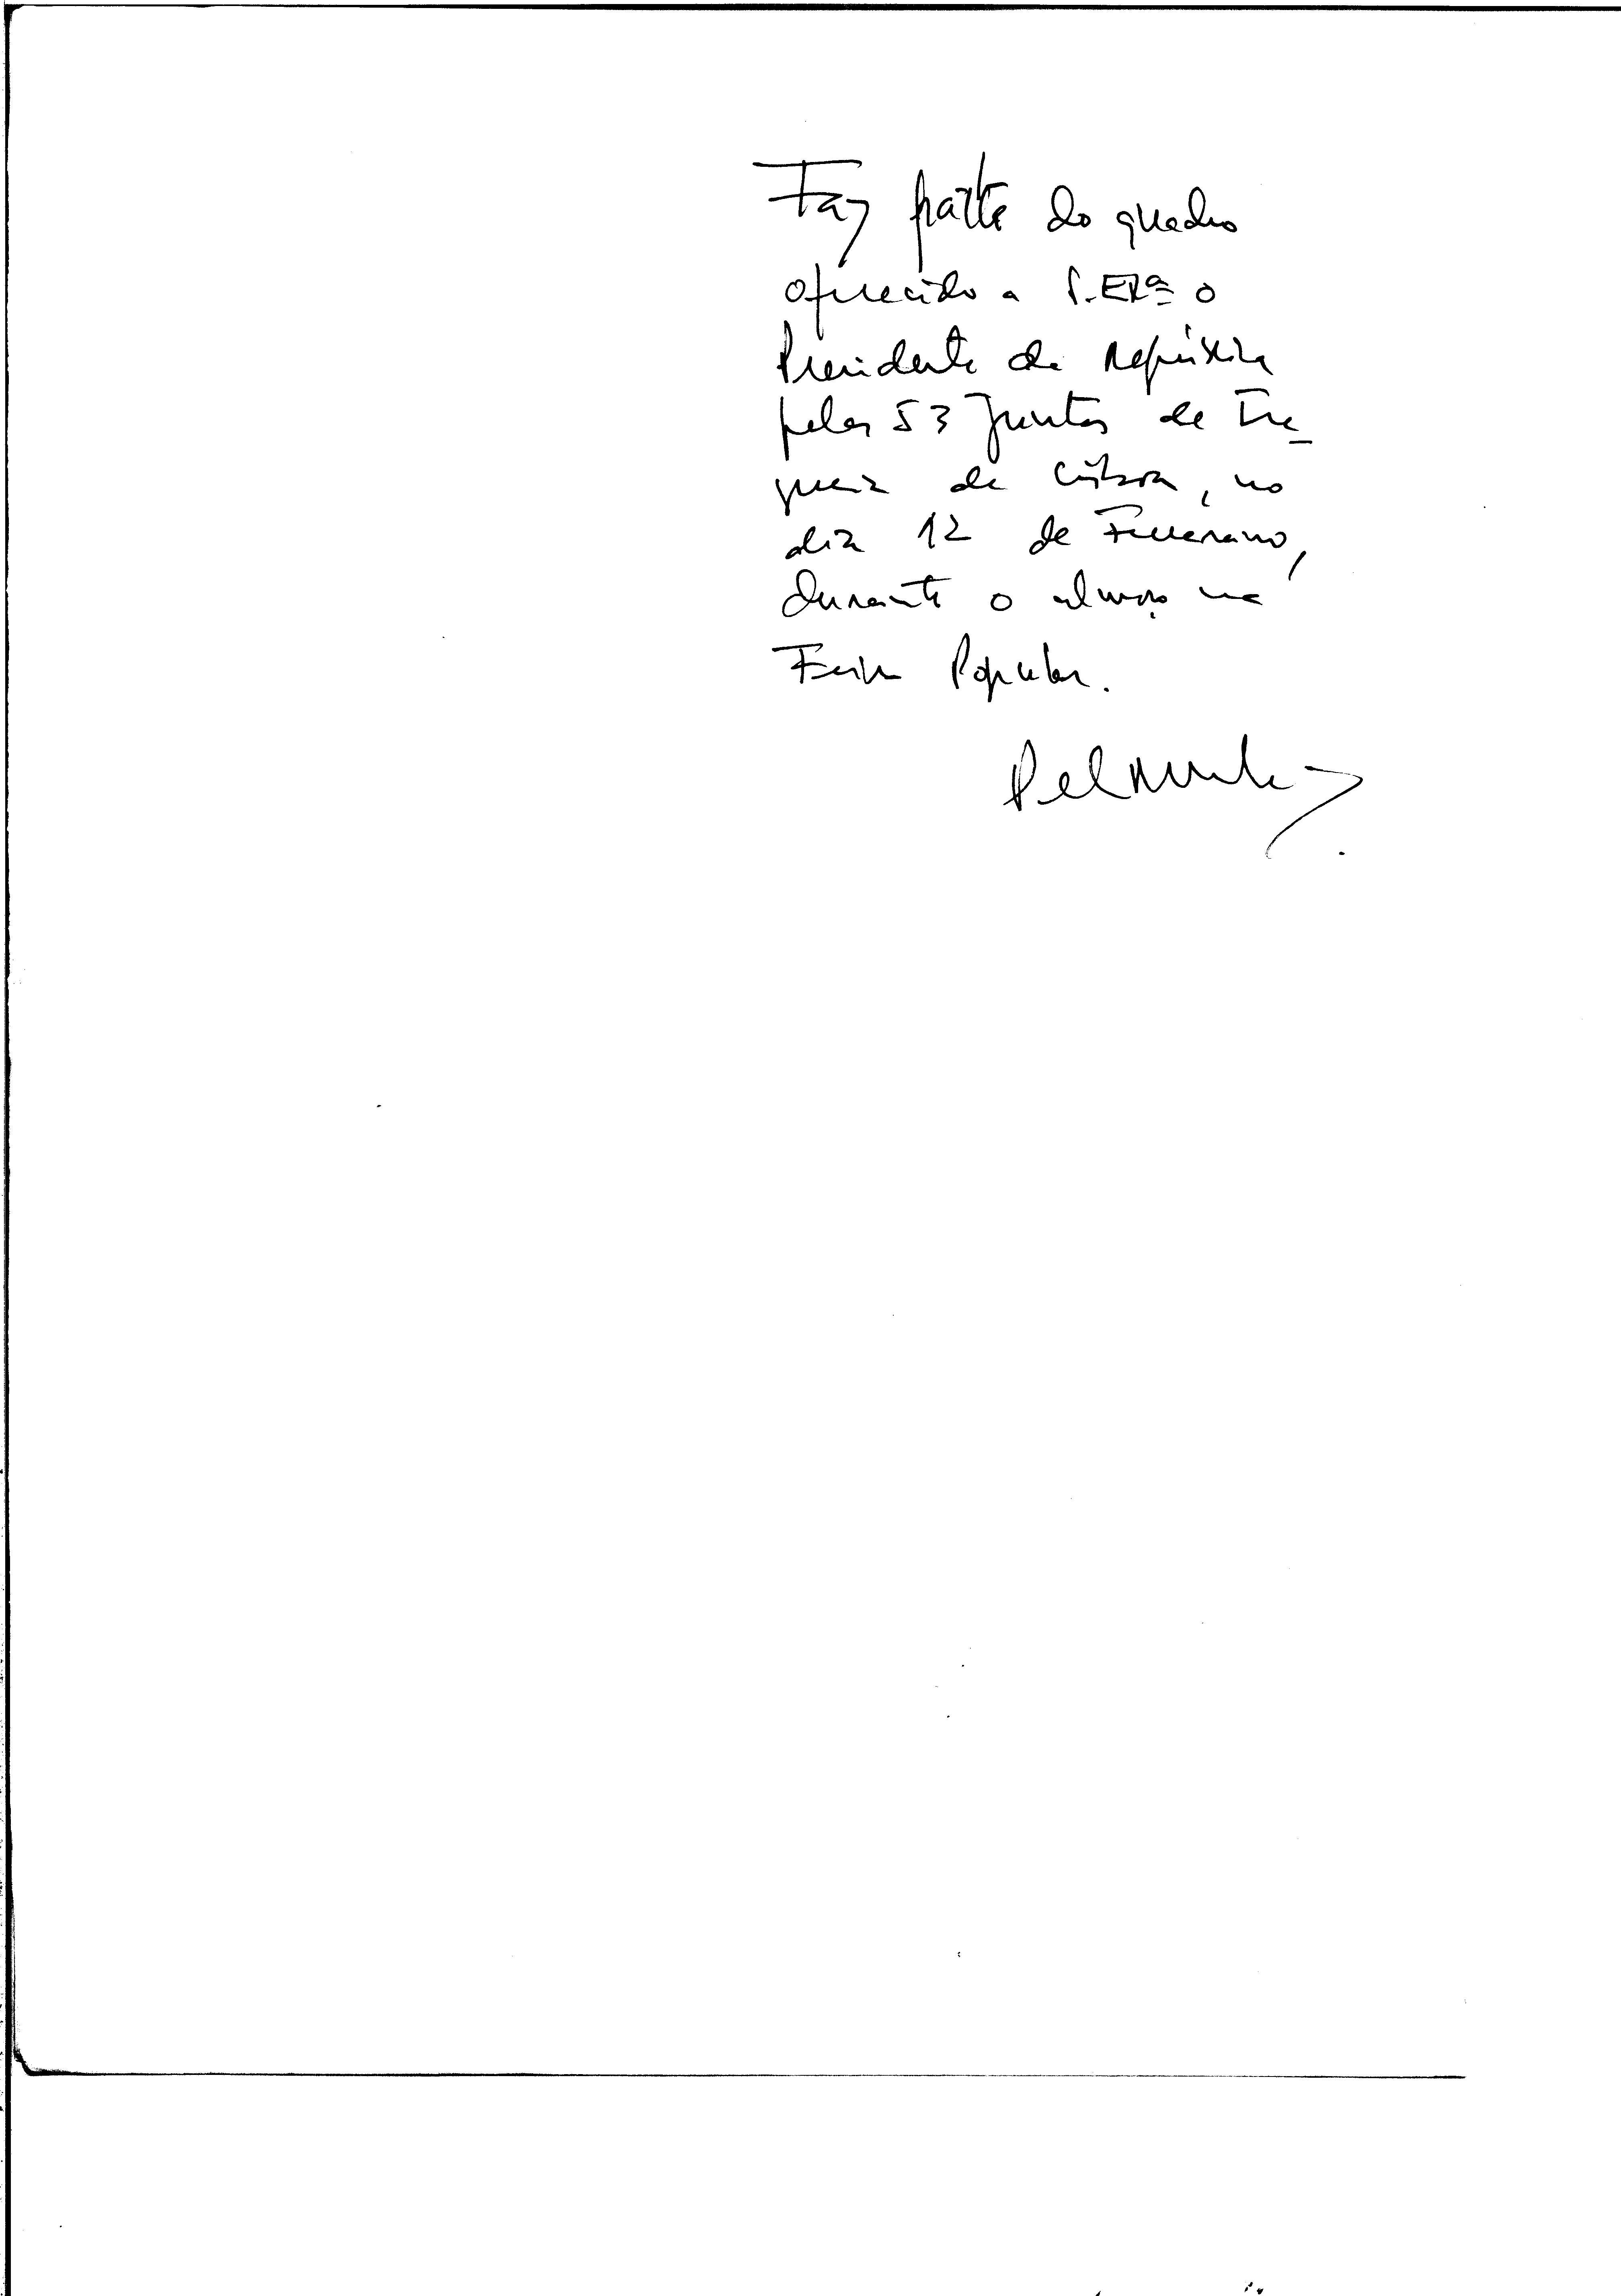 Faz parte do quadro
oferecido a S. Exª o
Presidente da República
pelas 53 Juntas de Fre-
guesia de Lisboa, no
dia 12 de Fevereiro,
durante o almoço na
Feira Popular.